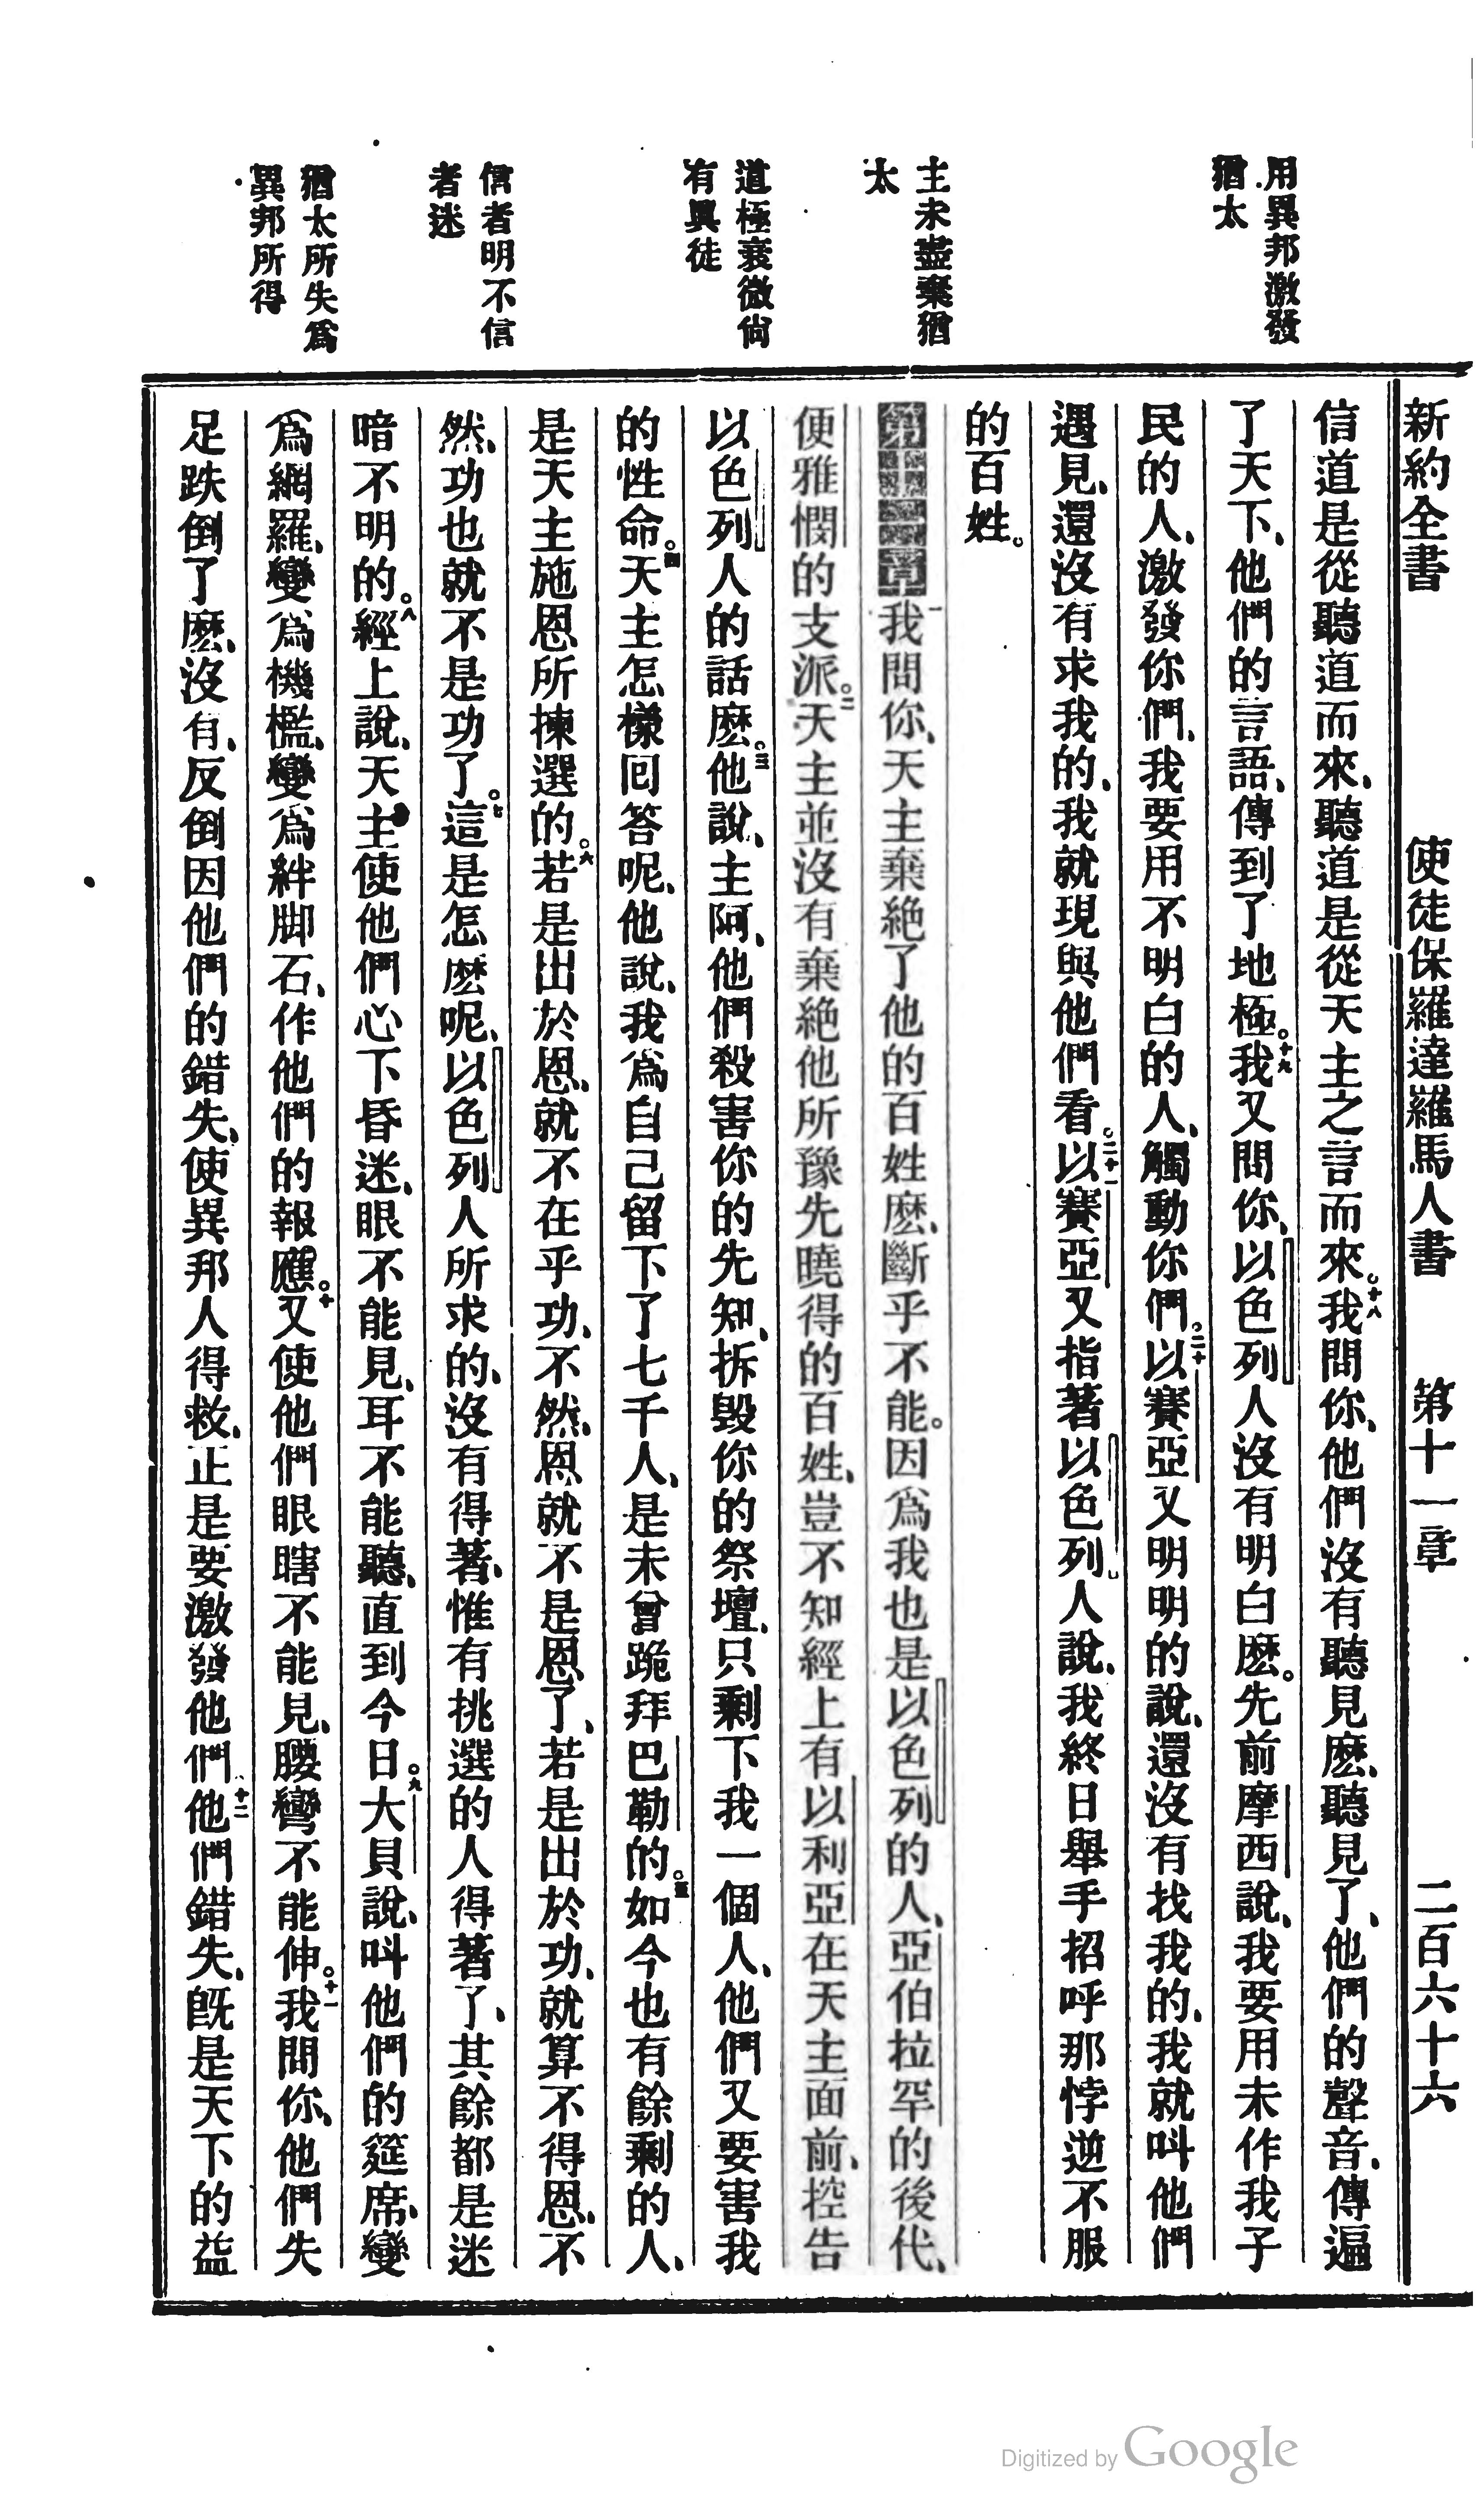 新約全書　使徒保羅達羅馬人書　第十一章　二百六十六
用異邦激發
猶太
主未盡棄猶
太
道極衰微尚
有異徒
信者明不信
者迷
猶太所失爲
異邦所得
信道是從聽道而來、聽道是從天主之言而來。十八我問你、他們沒有聽見麽、聽見了、他們的聲音、傳遍
了天下、他們的言語、傳到了地極。十九我又問你、以色列人沒有明白麽。先前摩西說、我要用未作我子
民的人、激發你們、我要用不明白的人、觸動你們。二十以賽亞又明明的說、還沒有找我的、我就叫他們
遇見、還沒有求我的、我就現與他們看。二十一以賽亞又指著以色列人說、我終日舉手招呼那悖逆不服
的百姓。
第十一章一我問你、天主棄絕了他的百姓麽、斷乎不能。因爲我也是以色列的人、亞伯拉罕的後代、
便雅憫的支派。二天主並沒有棄絕他所豫先曉得的百姓、豈不知經上有以利亞在天主面前、控告
以色列人的話麽。三他說、主阿、他們殺害你的先知、拆毀你的祭壇、只剩下我一個人、他們又要害我
的性命。四天主怎樣回答呢、他說、我爲自己留下了七千人、是未曾跪拜巴勒的。五如今也有餘剩的人、
是天主施恩所揀選的。六若是出於恩、就不在乎功、不然、恩就不是恩了、若是出於功、就算不得恩、不
然、功也就不是功了。七這是怎麽呢、以色列人所求的、沒有得著、惟有挑選的人得著了、其餘都是迷
暗不明的。八經上說、天主使他們心下昏迷、眼不能見、耳不能聽、直到今日。九大貝說、叫他們的筵席、變
爲網羅、變爲機檻、變爲絆脚石、作他們的報應。十又使他們眼瞎不能見、腰彎不能伸。十一我問你、他們失
足跌倒了麽、沒有、反倒因他們的錯失、使異邦人得救、正是要激發他們十二他們錯失、旣是天下的益
Digitized by Google